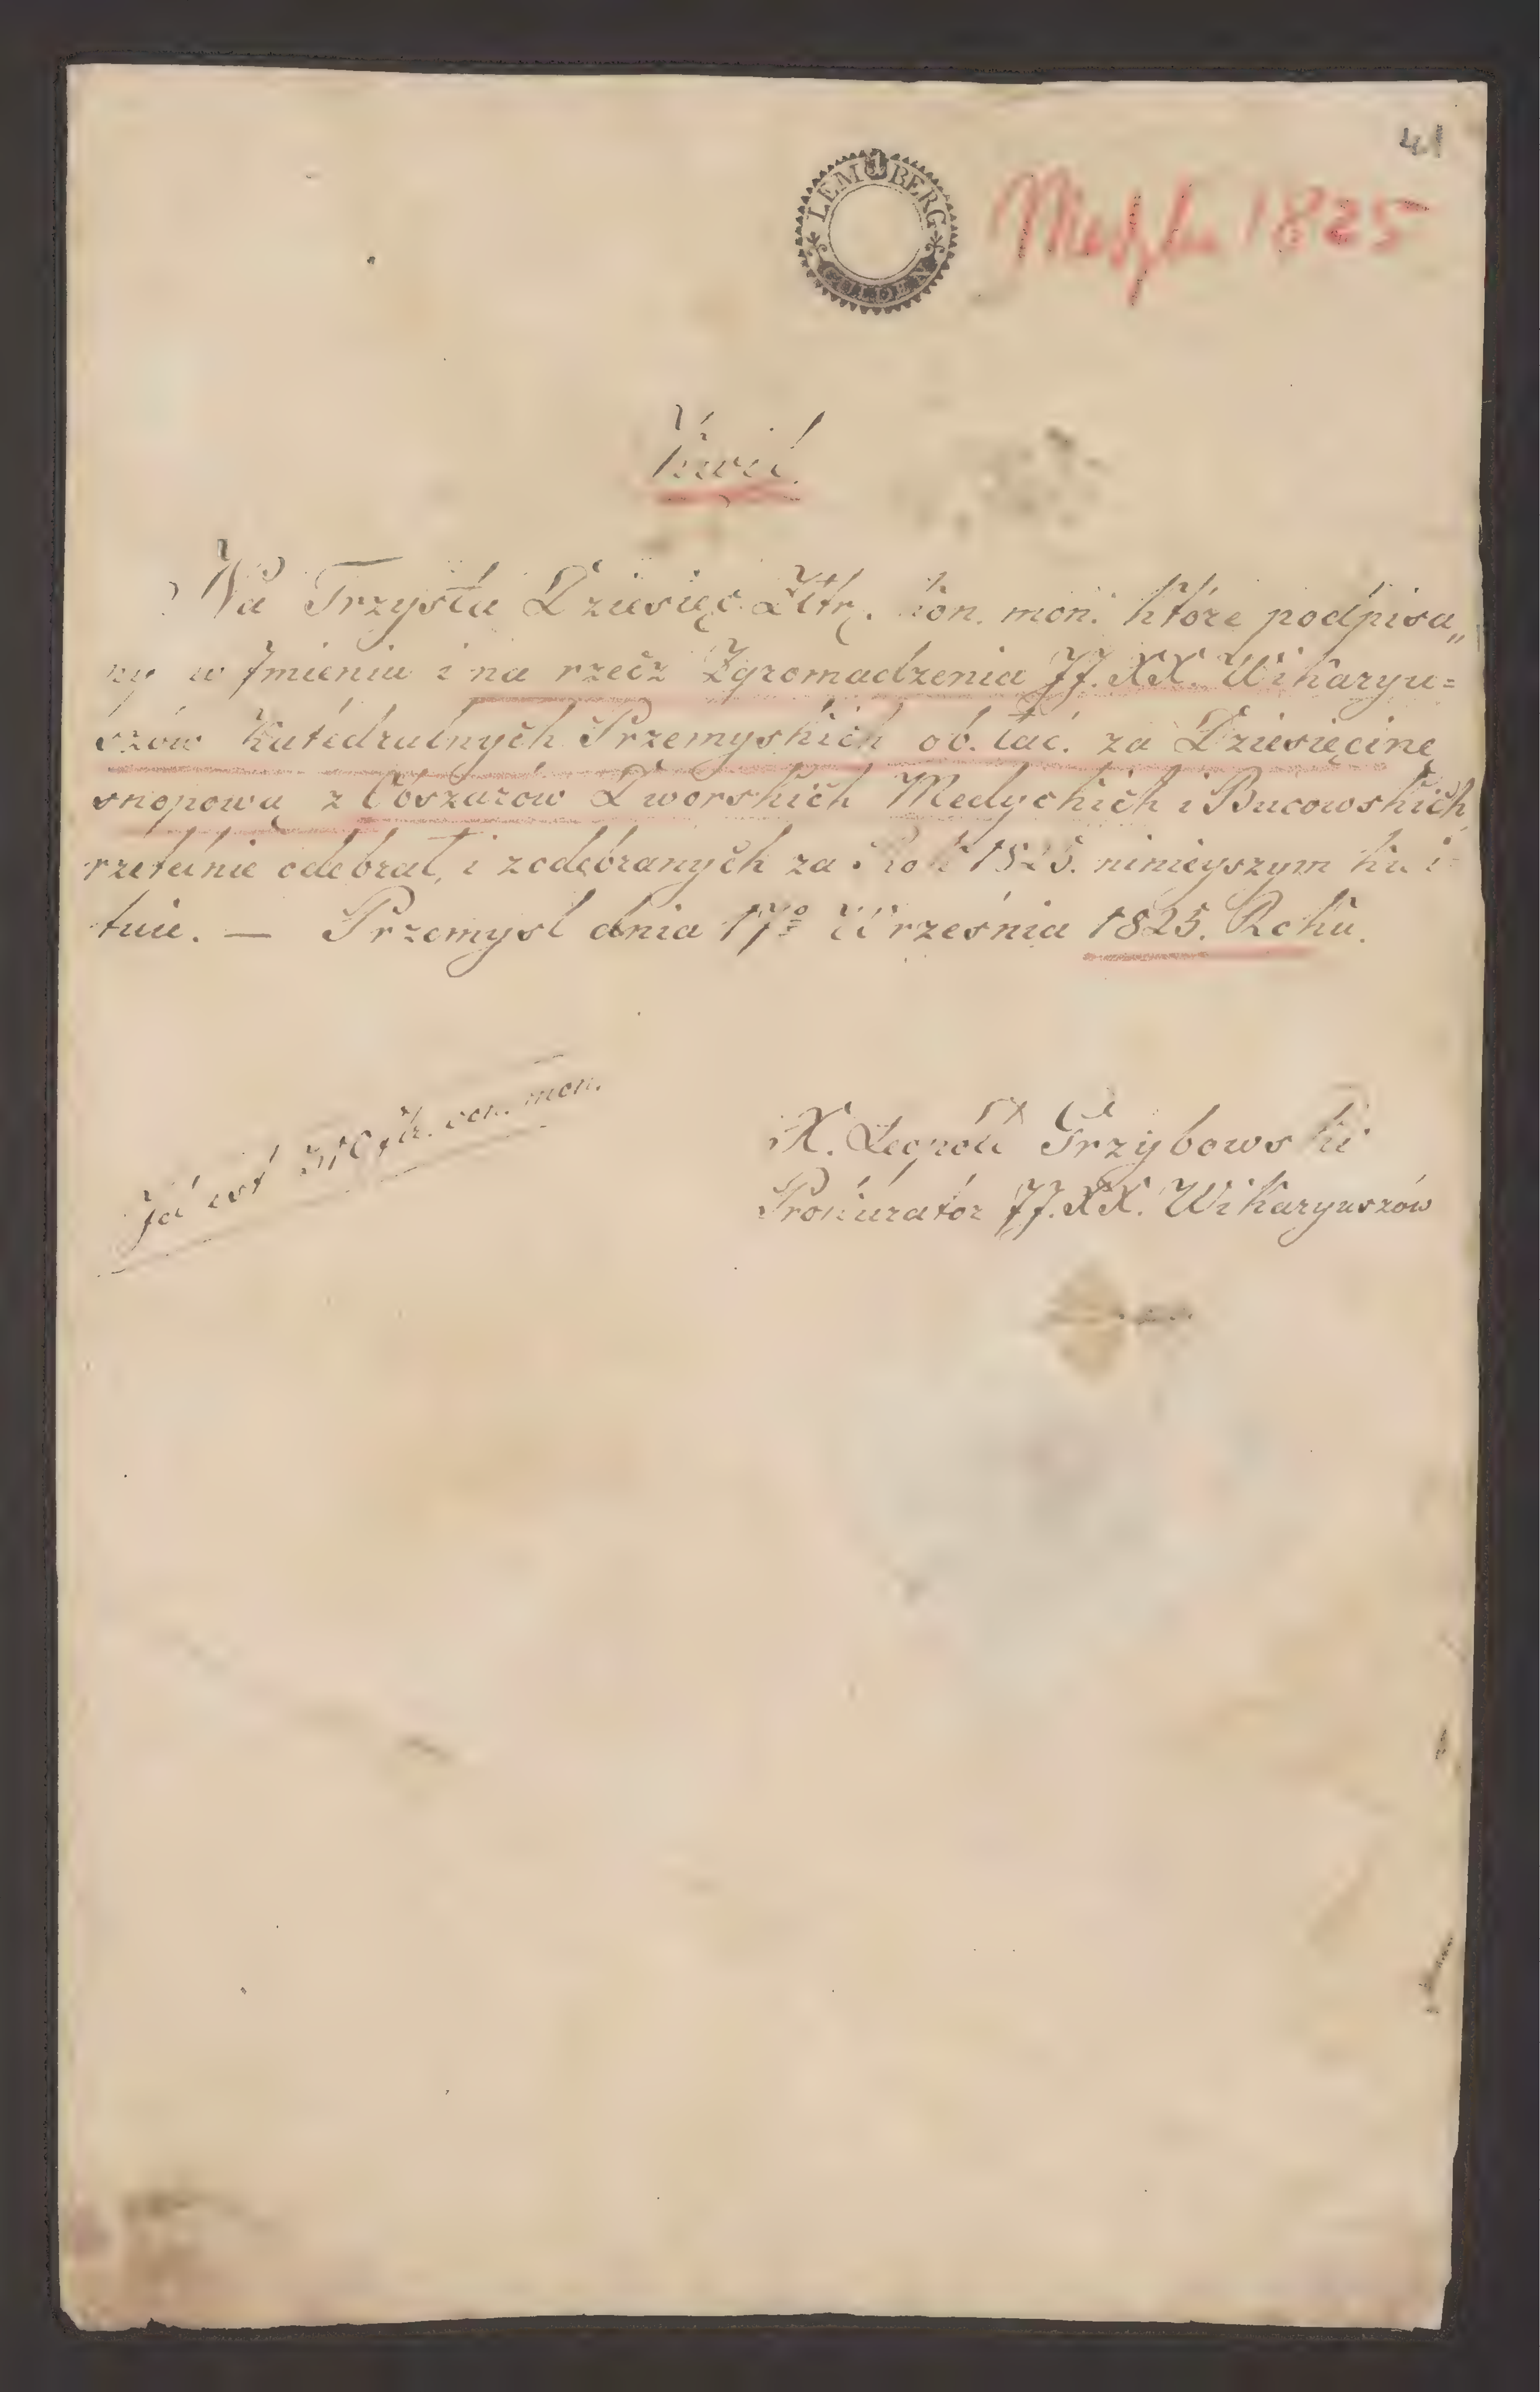 41
LEMBERG
GULDEN
1825
Kwit.
Na Trzysta Dziesięć Złtr. kon. mon. które podpisa„
ny w Jmieniu i na rzecz Zgromadzenia JJ. XX. Wikaryu=
szów Katedralnych Przemyskich ob. łac. za Dziesięcinę
snopową z Obszarów Dworskich Medyckich i Bucowskich
rzetelnie odebrał, i zodebranych za Rok 1825. ninieyszym kwi-
tuie. — Przemysl dnia 17º Września 1825. Roku.
To iest 310 złr. con. mon.
X. Leopold Grzybowski
Prokurator JJ. XX. Wikaryuszów